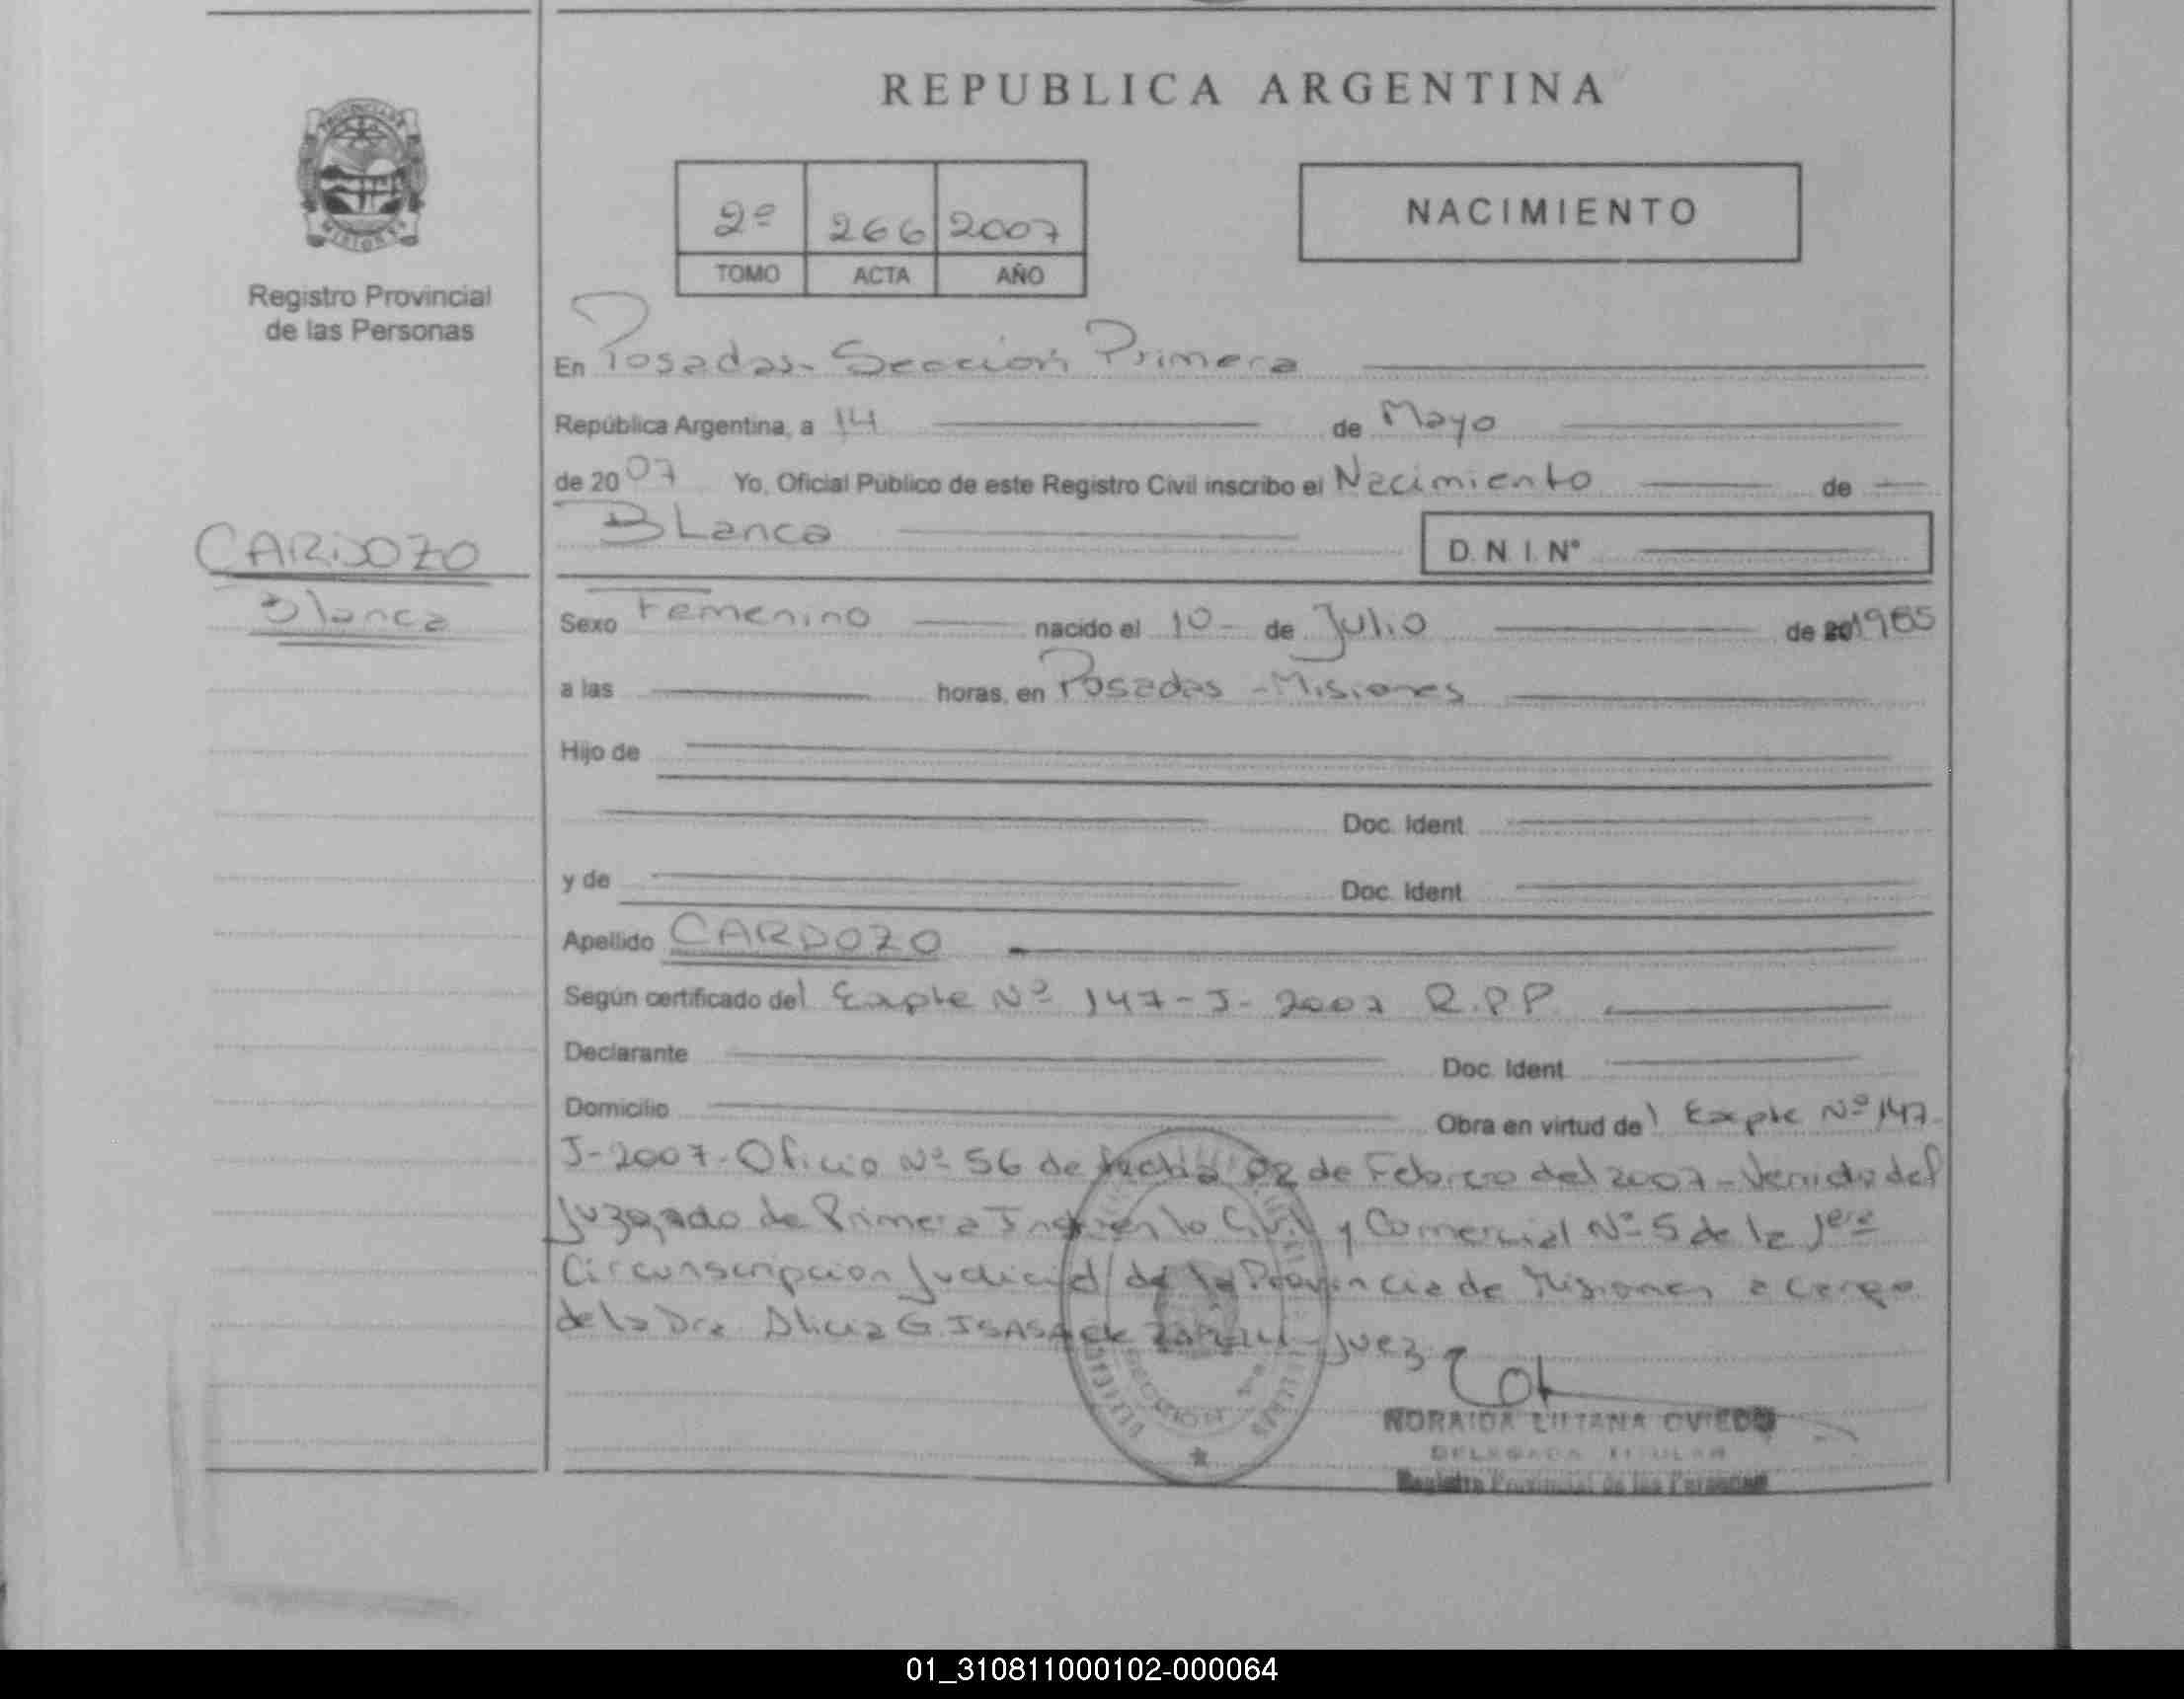 REPUBLICA ARGENTINA
PROVINCIA DE
MISIONES
Registro Provincial
de las Personas
2º 266 2007
TOMO ACTA AÑO
NACIMIENTO
En Posadas - Sección Primera
República Argentina, a 14 de Mayo
de 2007 Yo, Oficial Público de este Registro Civil inscribo el Nacimiento de
Blanca
D. N. I. Nº
CARDOZO
Blanca
Sexo Femenino nacido el 10 - de Julio de 20 1985
a las horas, en Posadas - Misiones
Hijo de
Doc. Ident.
y de Doc. Ident.
Apellido CARDOZO
Según certificado del Expte Nº 147-J-2007 R.P.P.
Declarante Doc. Ident.
Domicilio Obra en virtud del Expte Nº 147-
J-2007- Oficio Nº 56 de fecha 02 de Febrero del 2007 - Venido del
Juzgado de Primera Civil y Comercial Nº 5 de la 1era
Circunscripcion Judicial de la Provincia de Misiones a cargo
de la Dra Alicia G. ISASA de - Juez
SECCION 1ra
NORAIDA LILIANA OVIEDO
DELEGADA TITULAR
Registro Provincial de las Personas
01_310811000102-000064